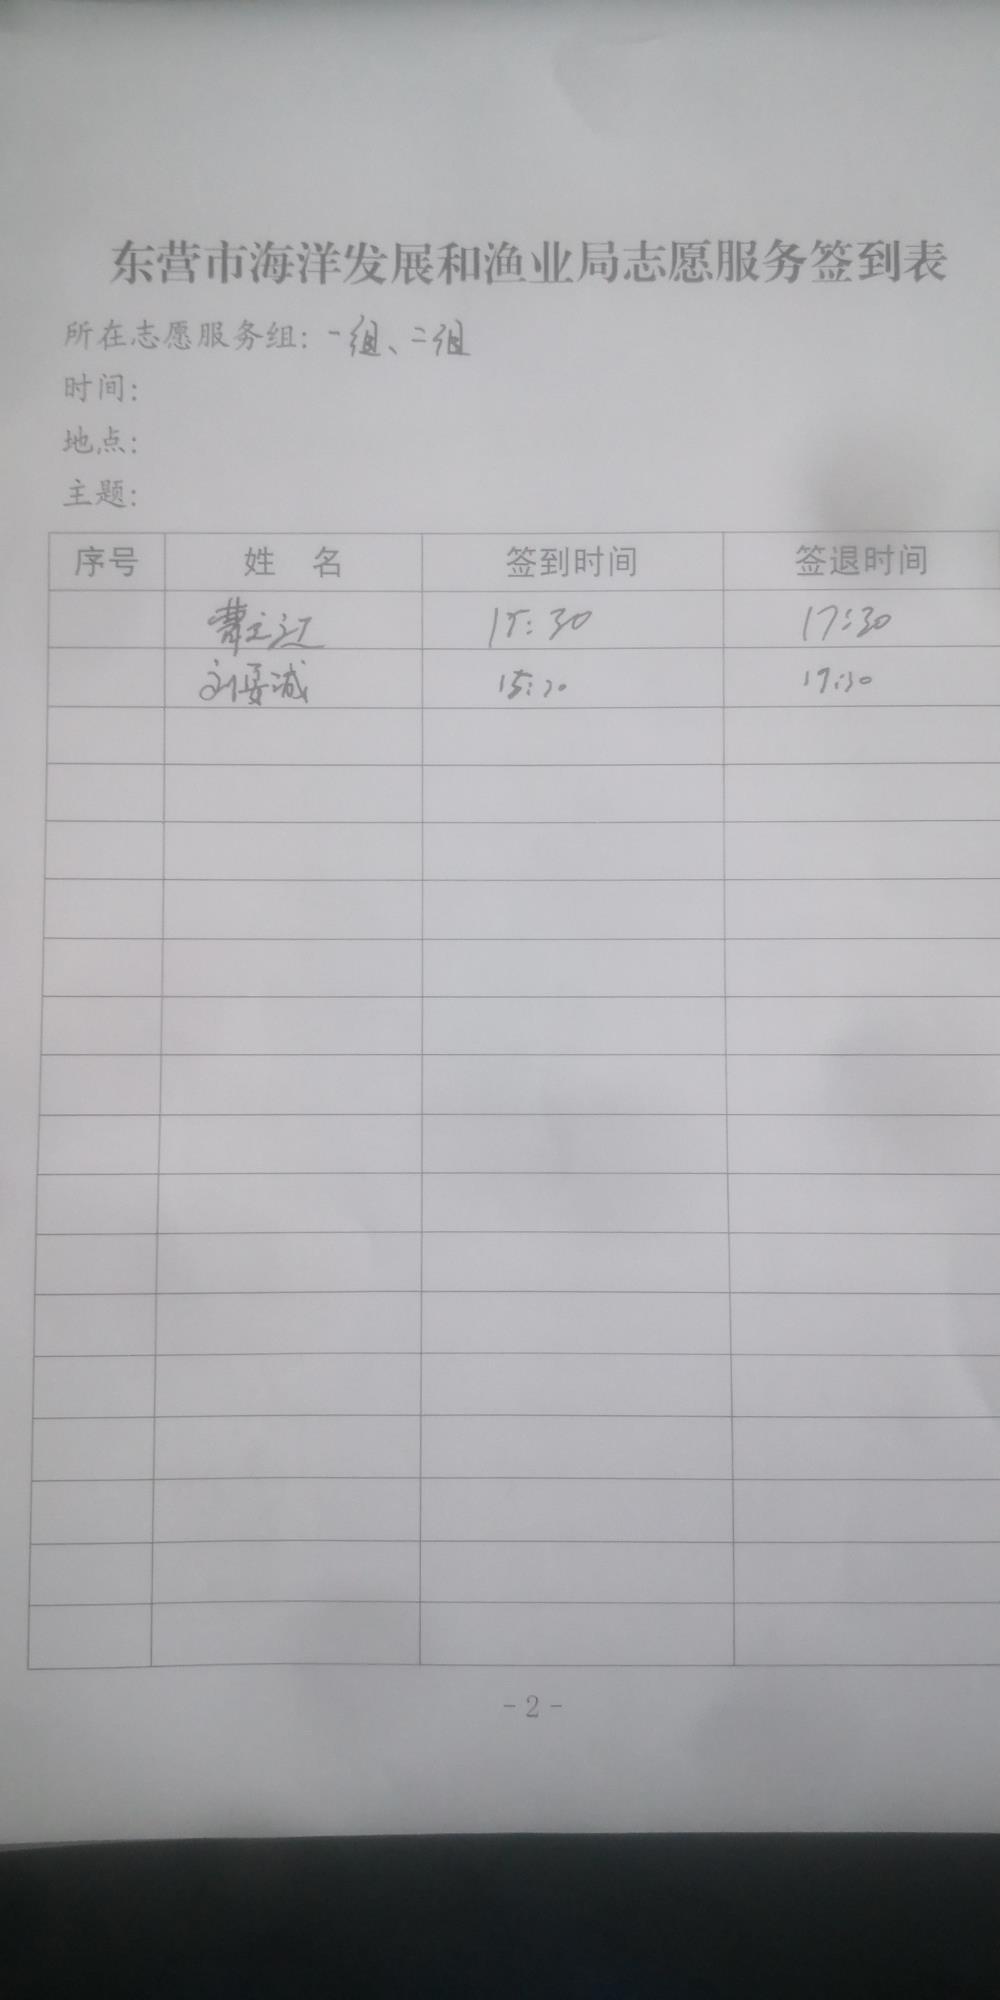 东营市海洋发展和渔业局志愿服务签到表
所在志愿服务组：一组、二组
时间：
地点：
主题：
序号 姓 名 签到时间 签退时间
曹 15:30 17:30
刘 15:30 17:30
- 2 -